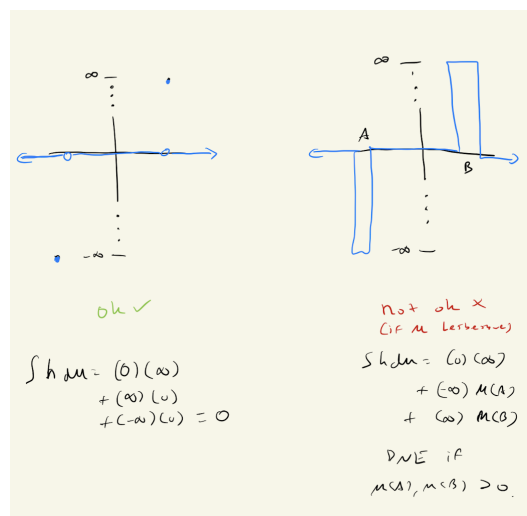 ∞
-∞
ok ✓
∫ h dμ = (0)(∞)
+ (∞)(0)
+ (-∞)(0) = 0
∞
A
B
-∞
not ok ×
(if μ Lerbesgue)
∫ h dμ = (0)(∞)
+ (-∞) μ(A)
+ (∞) μ(B)
DNE if
μ(A), μ(B) > 0.